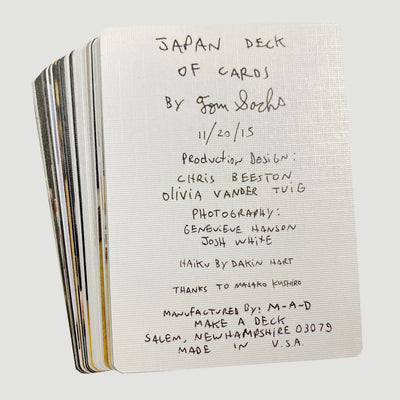 JAPAN DECK
OF CARDS
BY Tom Sachs
11/20/15
PRODUCTION DESIGN:
CHRIS BEESTON
OLIVIA VANDER TUIG
PHOTOGRAPHY:
GENEVIEVE HANSON
JOSH WHITE
HAIKU BY DAKIN HART
THANKS TO MASAKO KUSHIRO
MANUFACTURED BY: M-A-D
MAKE A DECK
SALEM, NEW HAMPSHIRE 03079
MADE IN U.S.A.